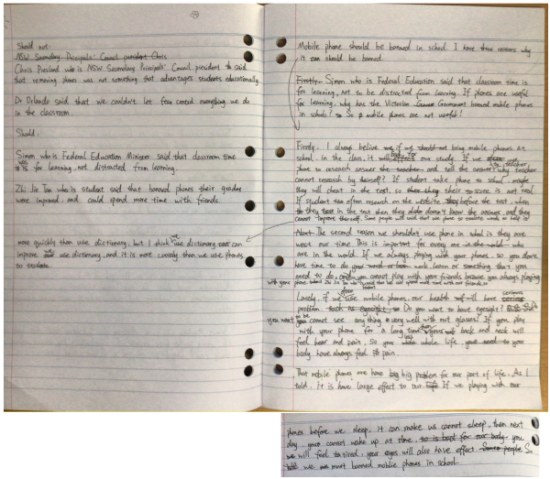 Should not:
NSW Secondary Principals' Council president Chris
Chris Presland who is NSW Secondary Principals' Council president said
that removing phones was not something that advantages students educationally.
Dr Orlando said that we couldn't let fear control everything we do
in the classroom.
Should:
Simon who is Federal Education Minister said that classroom time
is for learning, not distracted from learning.
Zhi Jie Tan who is student said that banned phones their grades
were improved and could spend more time with friends.
more quickly than use dictionary, but I think use dictionary can
improve and use dictionary, and it is more than we use phones
to
Mobile phone should be banned in school. I have than answer why
is can should be banned.
Firstion. Simon who is Federal Education said that classroom time is
for learning, not so be distracted from learning. If phones are useful
for learning, why has the Victorian Government banned mobile phones
in schools? So mobile phones are not useful!
Firstly, I always believe if we should not bring mobile phones at
school. in the class, it will our study. If we
phone to research answer the teacher and tell the answer, why teacher
cannot research by himself? If student take phone to school, maybe
they will cheat in the test, so their score is not real.
If student often research on the website before the test, when
they test in the test then they didn't know the answer, and they
cannot improve themself. Some people will said that use phone
The second reason we shouldn't use phone in what is they are
waste our time. This is important for every one in the world. who
are in the world. If we always playing with your phones, so you don't
have time to do your work or learn or something that you
need to do, and you cannot play with your friends because you always playing
with your phone.
Lastly, if we use mobile phones, our health will have
problem. Do you want to have eyesight?
you want to you cannot see anything very well with out glasses? If you play
with your phone for a long time, your neck and neck will
feel hear and pain, so your whole life, your need to your
body have always feel it pain.
That mobile phones are have big problem for our part of life. As I
told, it is have large effect to our If we playing with our
phones before we sleep, it can make us cannot sleep, then next
day, your cannot wake up at time, to is bad for our body. you
will feel to tired, your eyes will also have effect. Some people So
we must banned mobile phones in school.